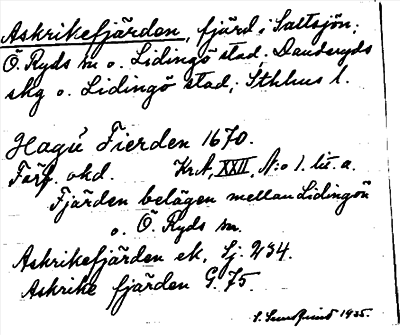 Askrikefjärden, fjärd i Saltsjön;
Ö. Ryds sn o. Lidingö stad, Danderyds
skg o. Lidingö stad; Sthlms l.
Hagú Fierden 1670.
Förf. okd. KrA, XXII, N:o 1. lit. a.
Fjärden belägen mellan Lidingön
o. Ö. Ryds sn.
Askrikefjärden ek. Sj. 234.
Askrike fjärden G. 75.
1935.